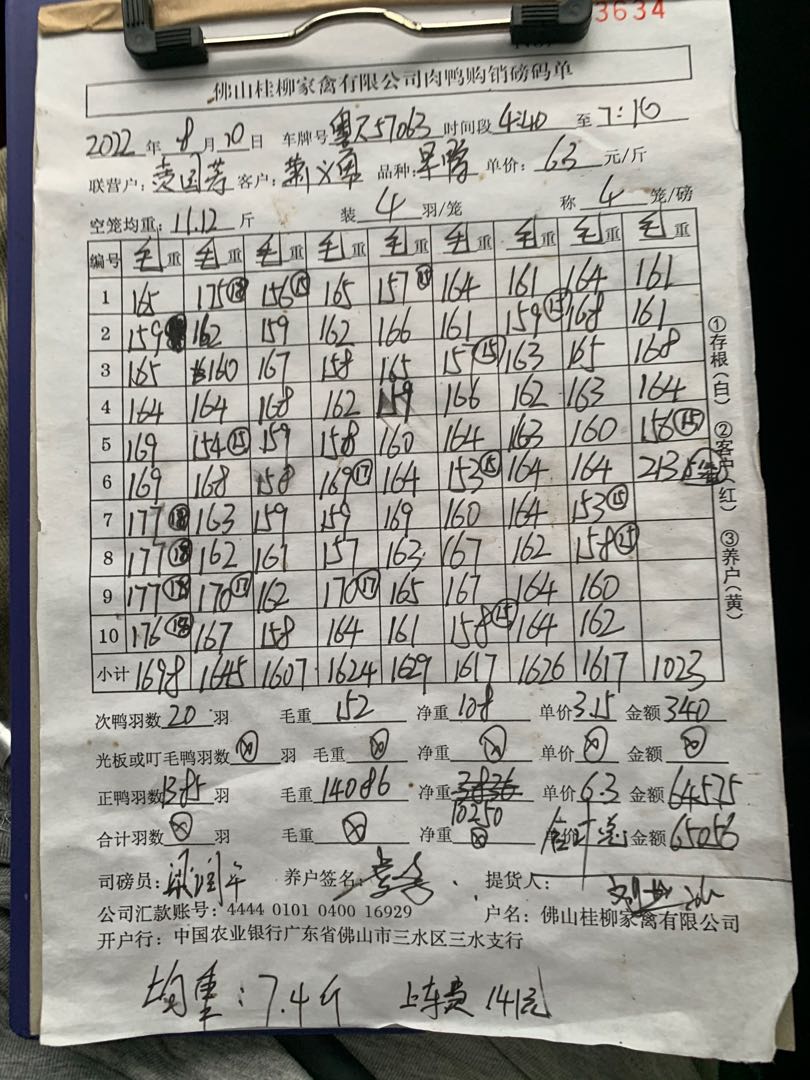 3634
佛山桂柳家禽有限公司肉鸭购销磅码单
2022 年 8 月 20 日 车牌号 57063 时间段 4:40 至 7:10
联营户: 客户: 品种: 单价: 63 元/斤
空笼均重: 11.12 斤 装 4 羽/笼 称 4 笼/磅
编号 毛重 毛重 毛重 毛重 毛重 毛重 毛重 毛重 毛重
1 165 175⑱ 156⑮ 165 157⑮ 164 161 164 161
2 159 162 159 162 166 161 159⑮ 168 161
3 165 160 167 158 165 157⑮ 163 165 168
4 164 164 168 162 159 166 162 163 164
5 169 154⑮ 159 158 160 164 163 160 156⑮
6 169 168 158 169⑰ 164 153⑮ 164 164 213
7 177⑱ 163 159 159 169 160 164 153⑮
8 177⑱ 162 161 157 163 167 162 158⑮
9 177⑱ 170⑰ 162 170⑰ 165 167 164 160
10 176⑱ 167 158 164 161 158⑮ 164 162
小计 1698 1645 1607 1624 1629 1617 1626 1617 1023
次鸭羽数 20 羽 毛重 152 净重 108 单价 3.15 金额 340
光板或叮毛鸭羽数 ⊗ 羽 毛重 ⊗ 净重 ⊗ 单价 ⊗ 金额 ⊗
正鸭羽数 1385 羽 毛重 14086 净重 3836 单价 6.3 金额 64575
10250
合计羽数 ⊗ 羽 毛重 ⊗ 净重 ⊗ 单价 金额 65056
司磅员: 养户签名: 提货人:
公司汇款账号: 4444 0101 0400 16929 户名: 佛山桂柳家禽有限公司
开户行: 中国农业银行广东省佛山市三水区三水支行
均重: 7.4斤 上车费 141元
①存根(白) ②客户(红) ③养户(黄)